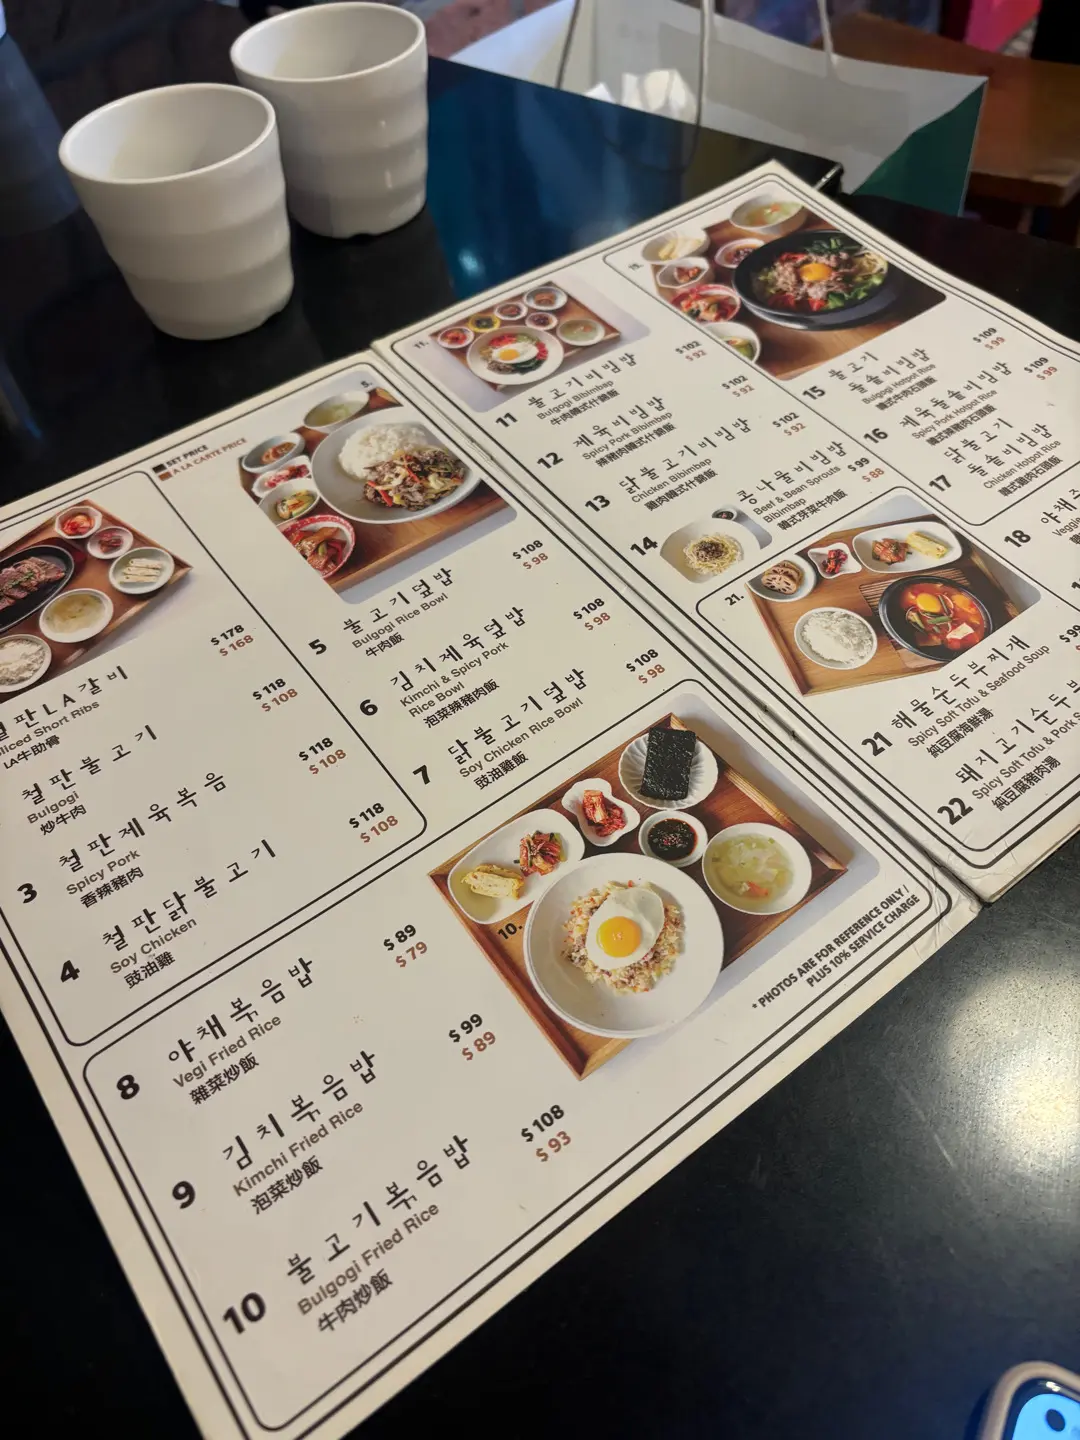 SET PRICE
À LA CARTE PRICE
판 L A 갈 비
Sliced Short Ribs
LA牛肋骨
$ 178
$ 168
철 판 불 고 기
Bulgogi
炒牛肉
$ 118
$ 108
3
철 판 제 육 볶 음
Spicy Pork
香辣豬肉
$ 118
$ 108
4
철 판 닭 불 고 기
Soy Chicken
豉油雞
$ 118
$ 108
5.
5
불 고 기 덮 밥
Bulgogi Rice Bowl
牛肉飯
$ 108
$ 98
6
김 치 제 육 덮 밥
Kimchi & Spicy Pork
Rice Bowl
泡菜辣豬肉飯
$ 108
$ 98
7
닭 불 고 기 덮 밥
Soy Chicken Rice Bowl
豉油雞飯
$ 108
$ 98
8
야 채 볶 음 밥
Vegi Fried Rice
雜菜炒飯
$ 89
$ 79
9
김 치 볶 음 밥
Kimchi Fried Rice
泡菜炒飯
$ 99
$ 89
10
불 고 기 볶 음 밥
Bulgogi Fried Rice
牛肉炒飯
$ 108
$ 93
10.
* PHOTOS ARE FOR REFERENCE ONLY /
PLUS 10% SERVICE CHARGE
11.
11
불 고 기 비 빔 밥
Bulgogi Bibimbap
牛肉韓式什錦飯
$ 102
$ 92
12
제 육 비 빔 밥
Spicy Pork Bibimbap
辣豬肉韓式什錦飯
$ 102
$ 92
13
닭 불 고 기 비 빔 밥
Chicken Bibimbap
雞肉韓式什錦飯
$ 102
$ 92
14
콩 나 물 비 빔 밥
Beef & Bean Sprouts
Bibimbap
韓式芽菜牛肉飯
$ 99
$ 88
15.
15
불 고 기
돌 솥 비 빔 밥
Bulgogi Hotpot Rice
韓式牛肉石頭飯
$ 109
$ 99
16
제 육 돌 솥 비 빔 밥
Spicy Pork Hotpot Rice
韓式辣豬肉石頭飯
$ 109
$ 99
17
닭 불 고 기
돌 솥 비 빔 밥
Chicken Hotpot Rice
韓式雞肉石頭飯
18
야 채
21.
21
해 물 순 두 부 찌 개
Spicy Soft Tofu & Seafood Soup
純豆腐海鮮湯
$ 99
22
돼 지 고 기 순 두 부
Spicy Soft Tofu & Pork
純豆腐豬肉湯